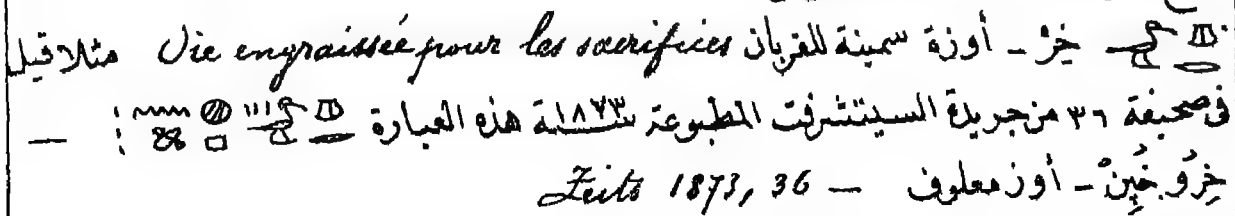 خِرْ - أوزة سمينة للقربان Oie engraissée pour les sacrifices مثلا قيل
فى صحيفة ٣٦ من جريدة السيتشرفت المطبوعة سنة ١٨٧٣ هذه العبارة : —
خِرُو خُپِنْ - أوز معلوف — Zeits 1873, 36